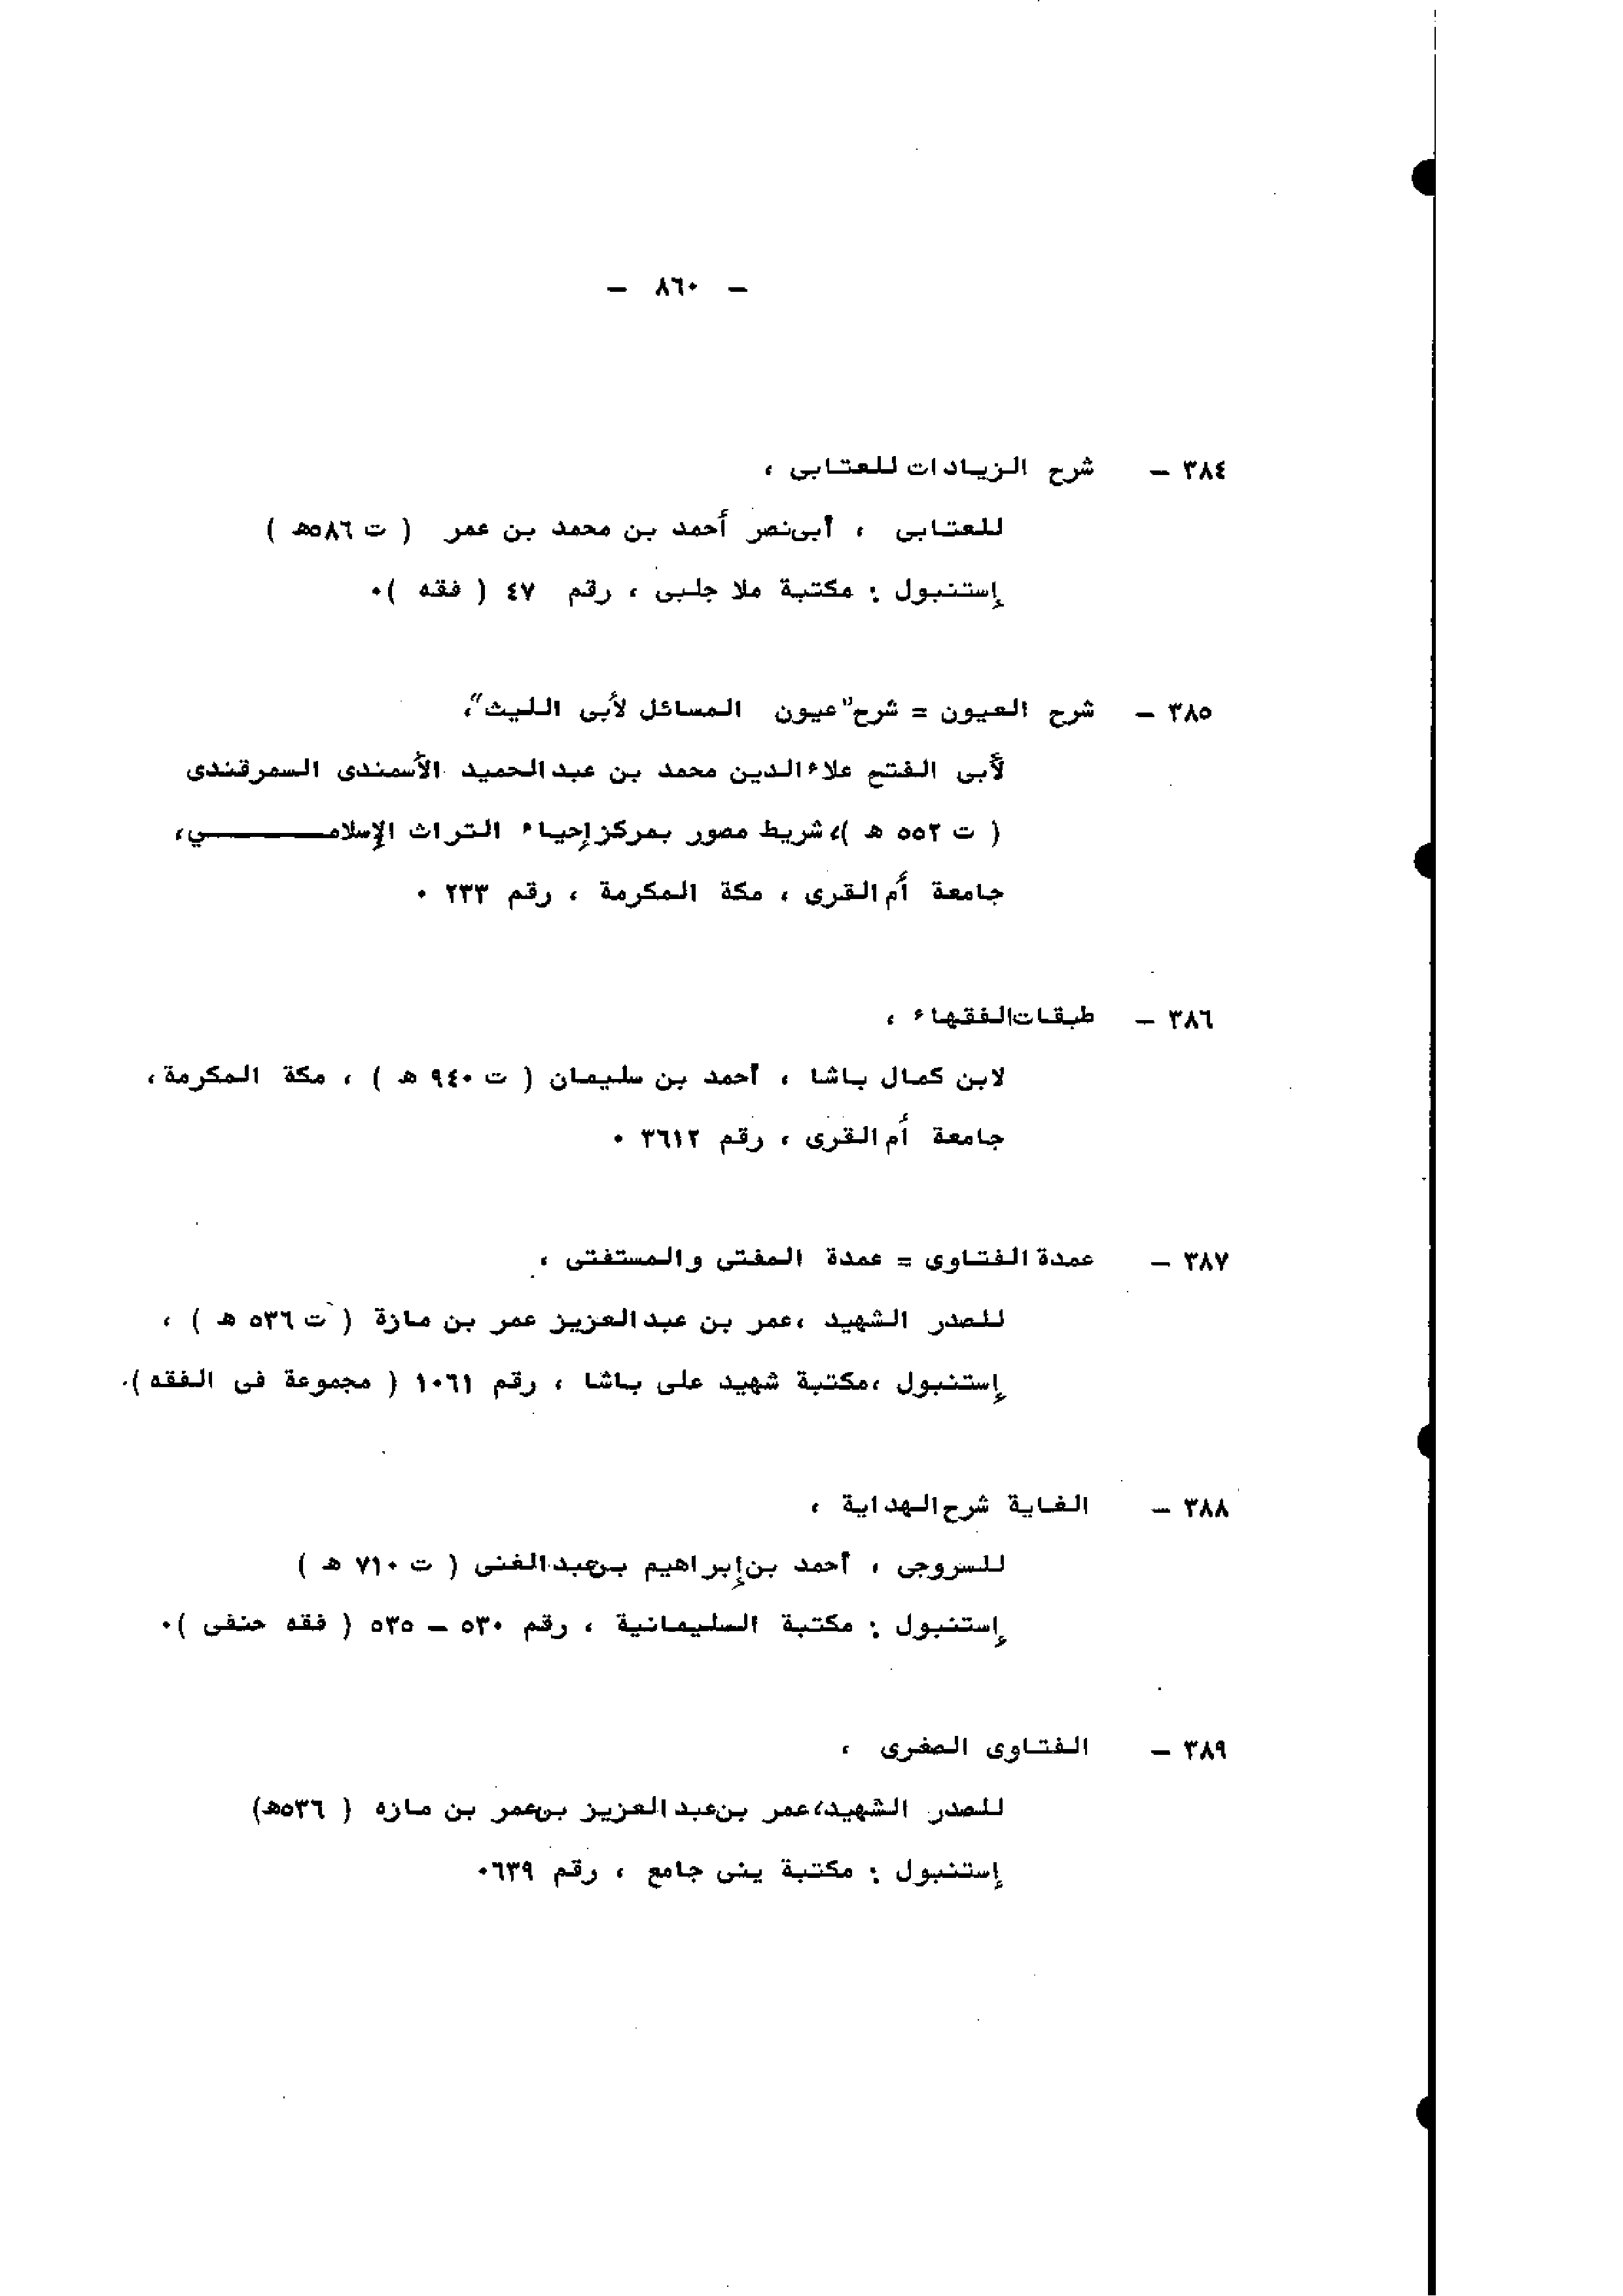 - ٨٦٠ -
٣٨٤ - شرح الزيادات للعتابى ،
للعتابى ، أبى نصر أحمد بن محمد بن عمر ( ت ٥٨٦ه )
إستنبول : مكتبة ملا جلبى ، رقم ٤٧ ( فقه )٠
٣٨٥ - شرح العيون = شرح "عيون المسائل لأبى الليث"،
لأبى الفتح علاء الدين محمد بن عبد الحميد الأسمندى السمرقندى
( ت ٥٥٢ ه )، شريط مصور بمركز إحياء التراث الإسلامـــــي،
جامعة أم القرى ، مكة المكرمة ، رقم ٢٣٣ ٠
٣٨٦ - طبقات الفقهاء ،
لابن كمال باشا ، أحمد بن سليمان ( ت ٩٤٠ ه ) ، مكة المكرمة،
جامعة أم القرى ، رقم ٣٦١٢ ٠
٣٨٧ - عمدة الفتاوى = عمدة المفتى والمستفتى ،
للصدر الشهيد ،عمر بن عبد العزيز عمر بن مازة ( ت ٥٣٦ ه ) ،
إستنبول ،مكتبة شهيد على باشا ، رقم ١٠٦١ ( مجموعة فى الفقه )٠
٣٨٨ - الغاية شرح الهداية ،
للسروجى ، أحمد بن إبراهيم بن عبد الغنى ( ت ٧١٠ ه )
إستنبول : مكتبة السليمانية ، رقم ٥٣٠ - ٥٣٥ ( فقه حنفى )٠
٣٨٩ - الفتاوى الصغرى ،
للصدر الشهيد،عمر بن عبد العزيز بن عمر بن مازه ( ٥٣٦ه)
إستنبول : مكتبة ينى جامع ، رقم ٦٣٩٠